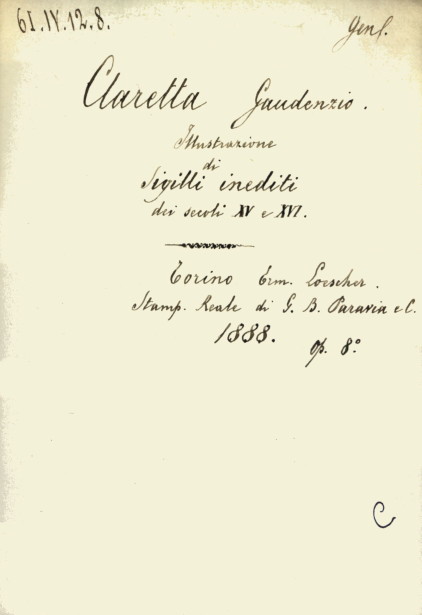 61.IV.12.8.
Gen.
Claretta Gaudenzio.
Illustrazione
di
Sigilli inediti
dei secoli XV e XVI.
Torino Erm. Loescher.
Stamp. Reale di G. B. Paravia e C.
1888.
Op. 8°
C